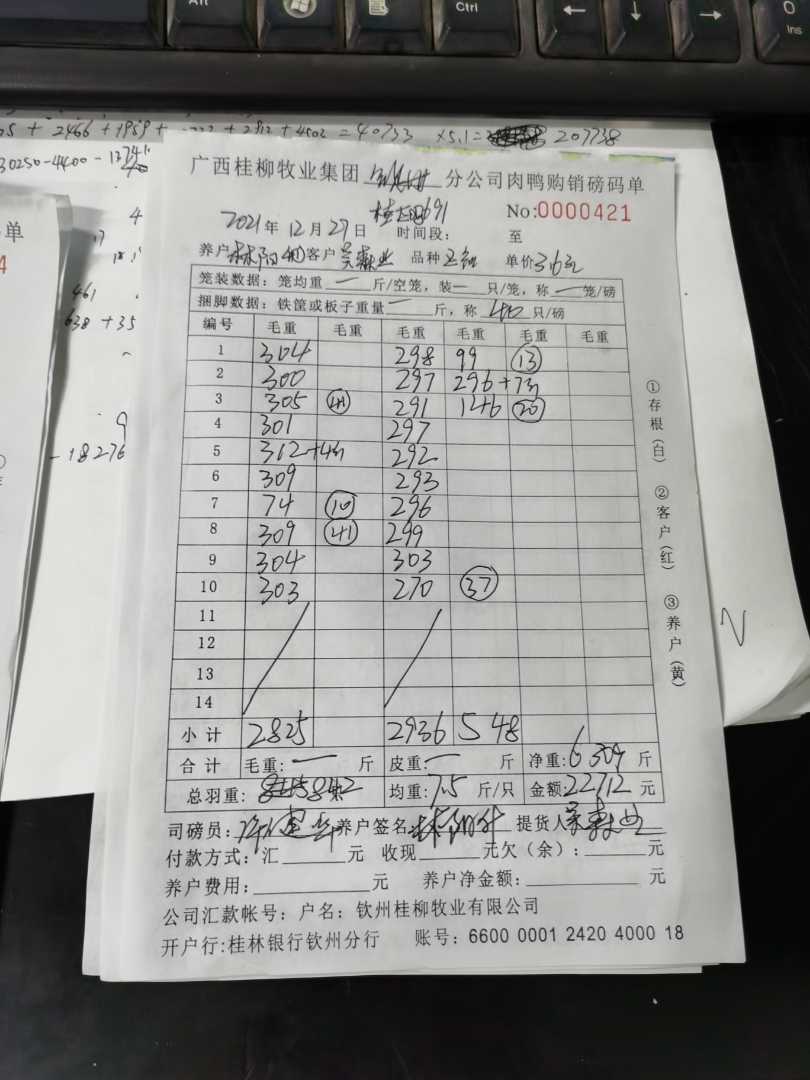 Alt
Ctrl
← ↓ →
0
Ins
+ 2466 + 1959 + + 2912 + 4502 = 40733 ×5.1= 207738
30250-4400-
4
461
638 + 35
9
-18276
单
4
广西桂柳牧业集团 分公司肉鸭购销磅码单
691 No:0000421
2021年12月29日 时间段: 至
养户 客户 品种 单价3.6元
笼装数据:笼均重 一 斤/空笼,装一 只/笼,称 一 笼/磅
捆脚数据:铁筐或板子重量 一 斤,称 40 只/磅
编号 毛重 毛重 毛重 毛重 毛重 毛重
1 304 298 99 13
2 300 297 296+
3 305 41 291 146 20
4 301 297
5 312+ 292
6 309 293
7 74 10 296
8 309 41 299
9 304 303
10 303 270 37
11
12
13
14
小计 2825 2936 548
合计 毛重:一 斤 皮重:一 斤 净重:6309 斤
总羽重: 842 均重:7.5 斤/只 金额:22712 元
司磅员: 养户签名 提货人
付款方式:汇 元 收现 元欠(余): 元
养户费用: 元 养户净金额: 元
公司汇款帐号:户名:钦州桂柳牧业有限公司
开户行:桂林银行钦州分行 账号:6600 0001 2420 4000 18
①存根(白)
②客户(红)
③养户(黄)